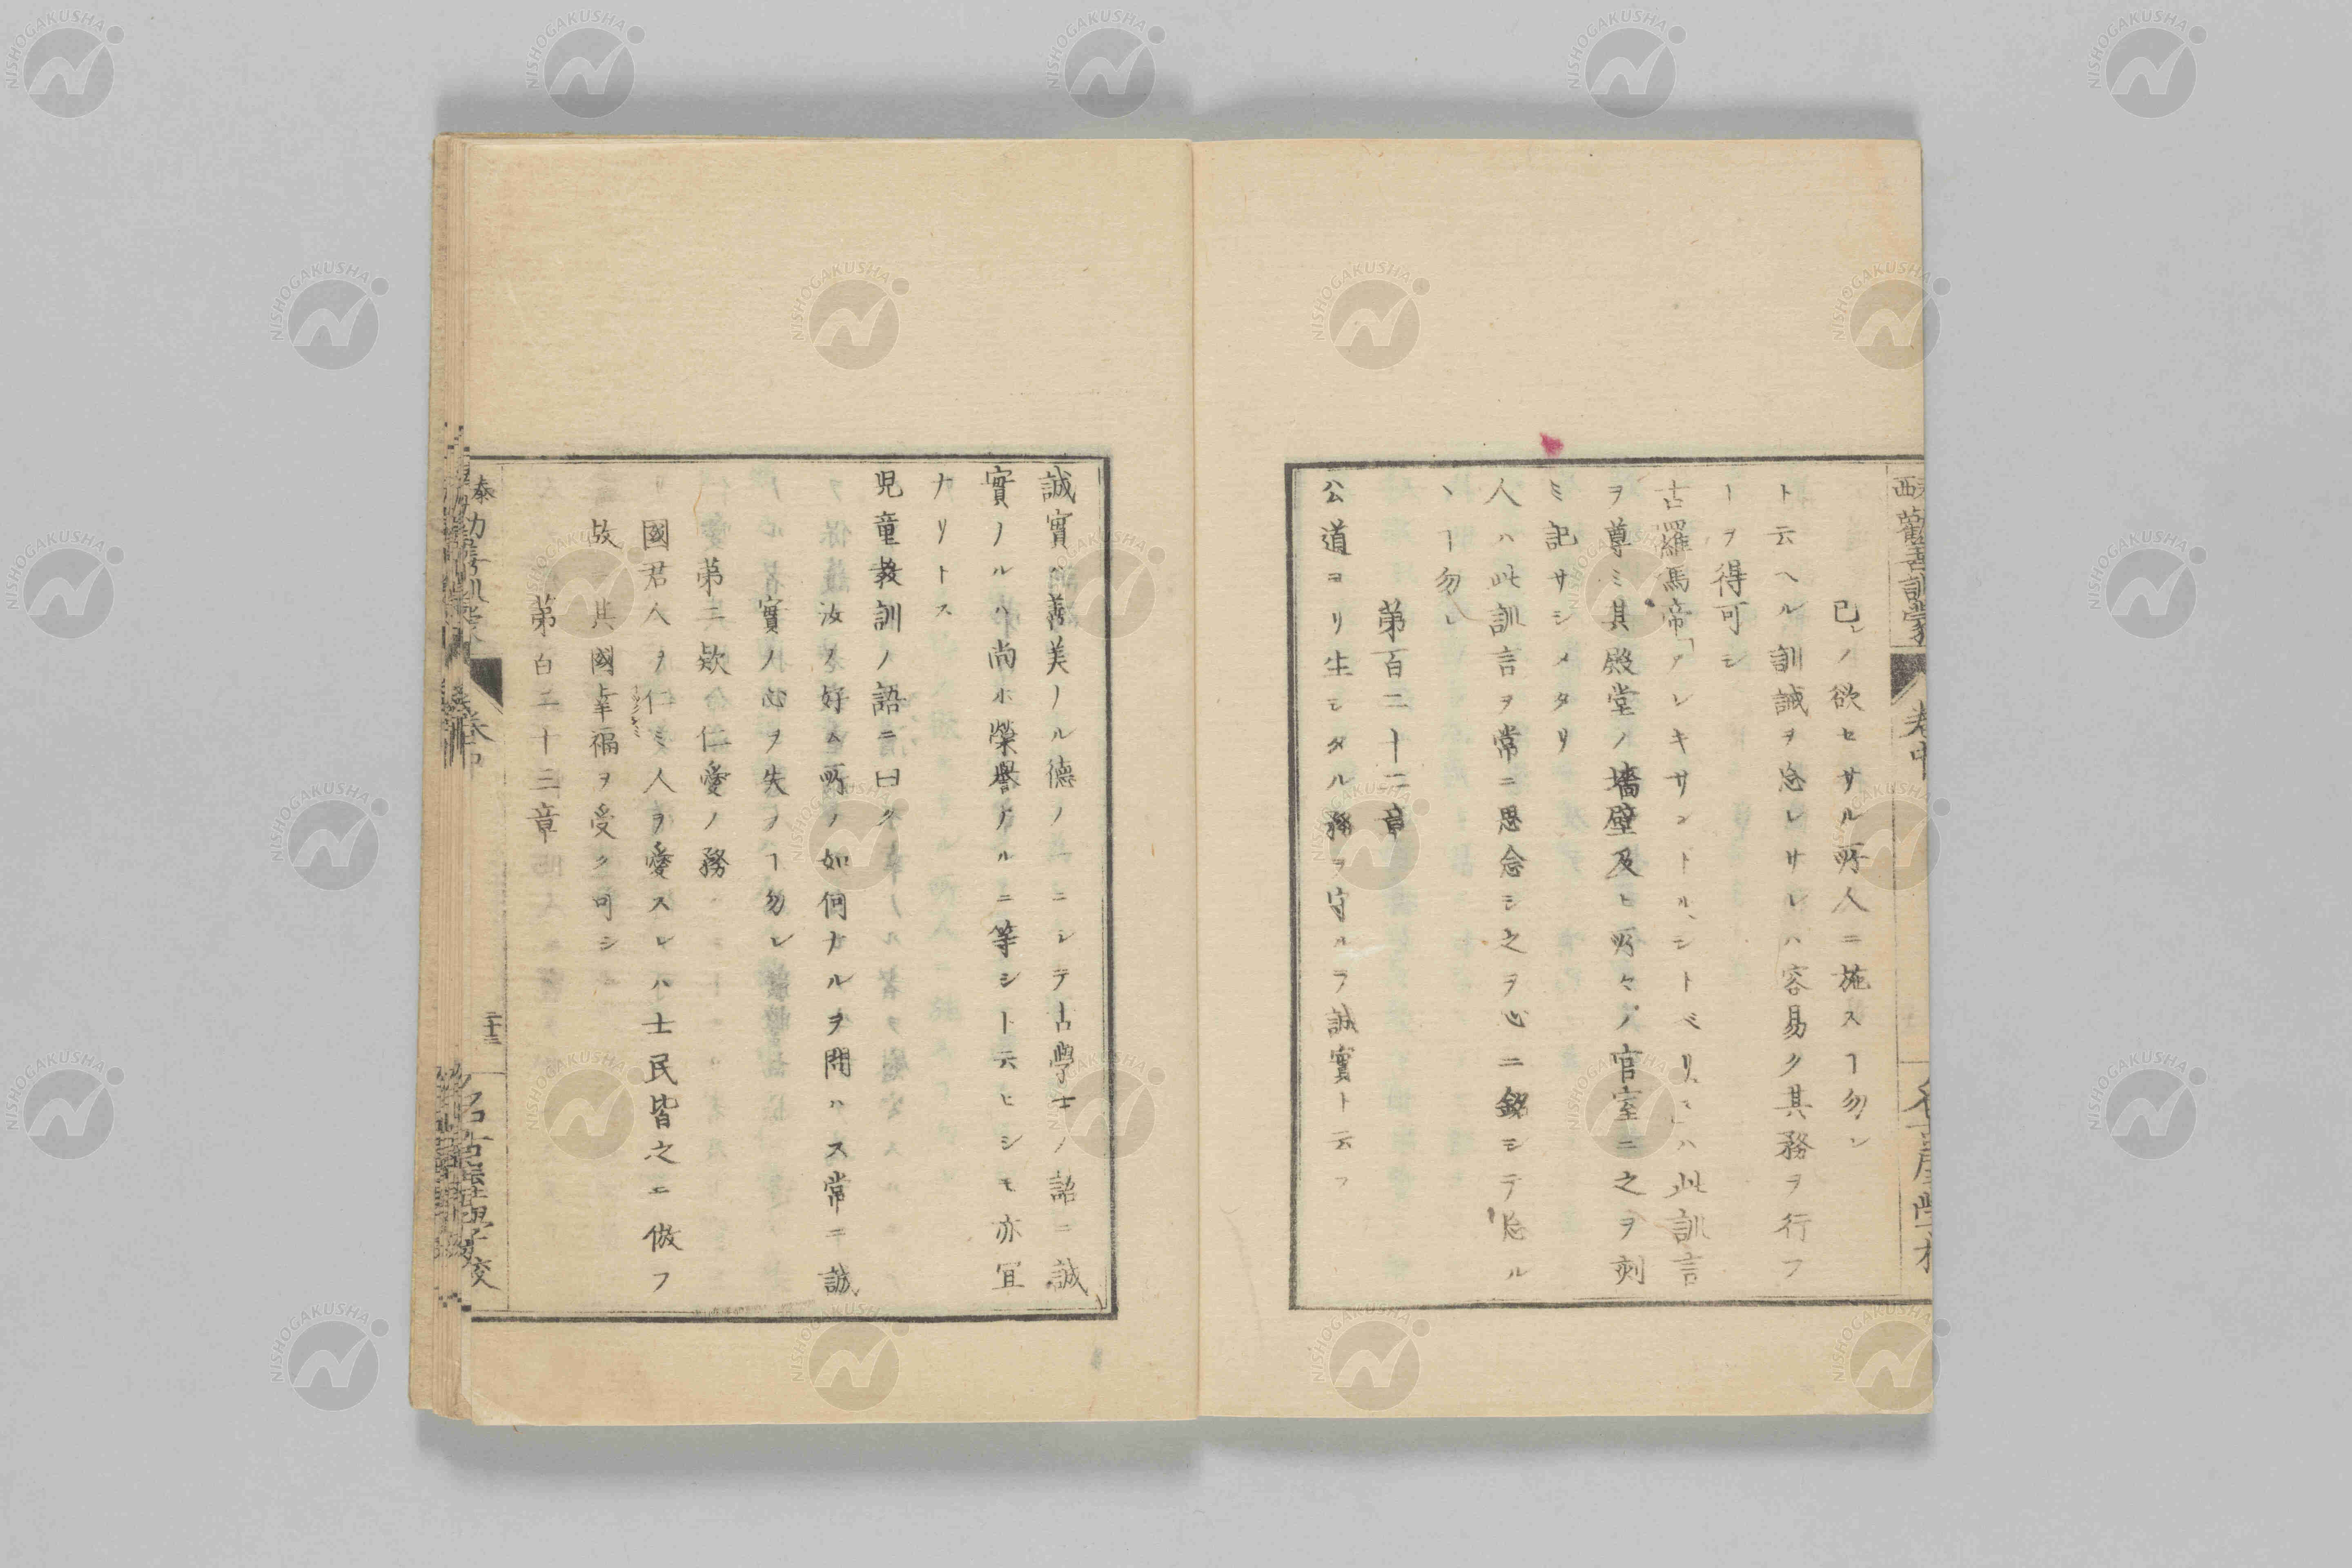 己レノ欲セサル所人ニ施スヿ勿レ
ト云ヘル訓誡ヲ忘レサレハ容易ク其務ヲ行フ
ヿヲ得可シ
古羅馬帝「アレキサンドル、シトベリュス」ハ此訓言
ヲ尊ミ其殿堂ノ墻壁及ヒ所々ノ官室ニ之ヲ刻
ミ記サシメタリ
人ハ此訓言ヲ常ニ思念シ之ヲ心ニ銘シテ忘ル
ヽヿ勿レ
第百二十二章
公道ヨリ生シタル務ヲ守ルヲ誠實ト云フ
誠實ハ善美ノル德ノ一ニシテ古學士ノ語ニ誠
實ノルハ尚ホ榮譽アルニ等シト云ヒシモ亦宜
ナリトス
児童教訓ノ語ニ曰ク
汝ノ好ム所ノ如何ナルヲ問ハス常ニ誠
實ノ心ヲ失フヿ勿レ
第三款 仁愛ノ務
國君人ヲ仁ミ人ヲ愛スレハ士民皆之ニ倣フ
故ニ其國幸福ヲ受ク可シ
第百二十三章
泰西勸善訓蒙
卷中
名古屋學校
NISHOGAKUSHA